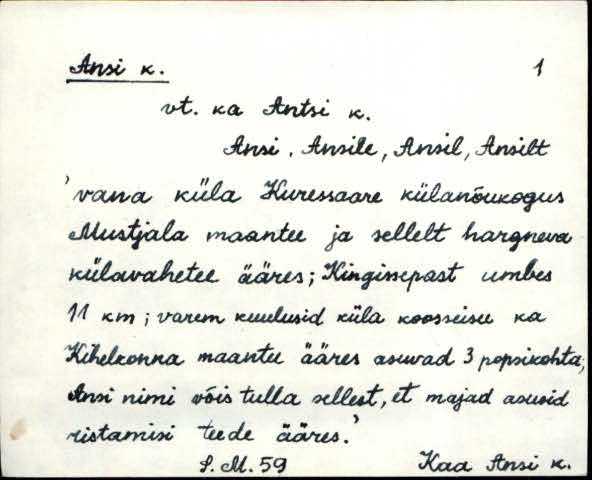 Ansi k. 1
vt. ka Antsi k.
Ansi, Ansile, Ansil, Ansilt
'vana küla Kuressaare külanõukogus
Mustjala maantee ja sellelt hargneva
külavahetee ääres; Kingissepast umbes
11 km; varem kuulusid küla koosseisu ka
Kihelkonna maantee ääres asuvad 3 popsikohta;
Ansi nimi võis tulla sellest, et majad asusid
ristamisi teede ääres.'
S. M. 59 Kaa Ansi k.